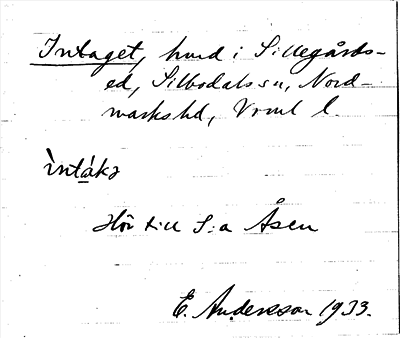 Intaget, hmd i Sillegårds-
ed, Silbodals sn, Nord-
markshd, Vrml l.
ìntákə
Hör till S:a Åsen
E. Andersson 1933.